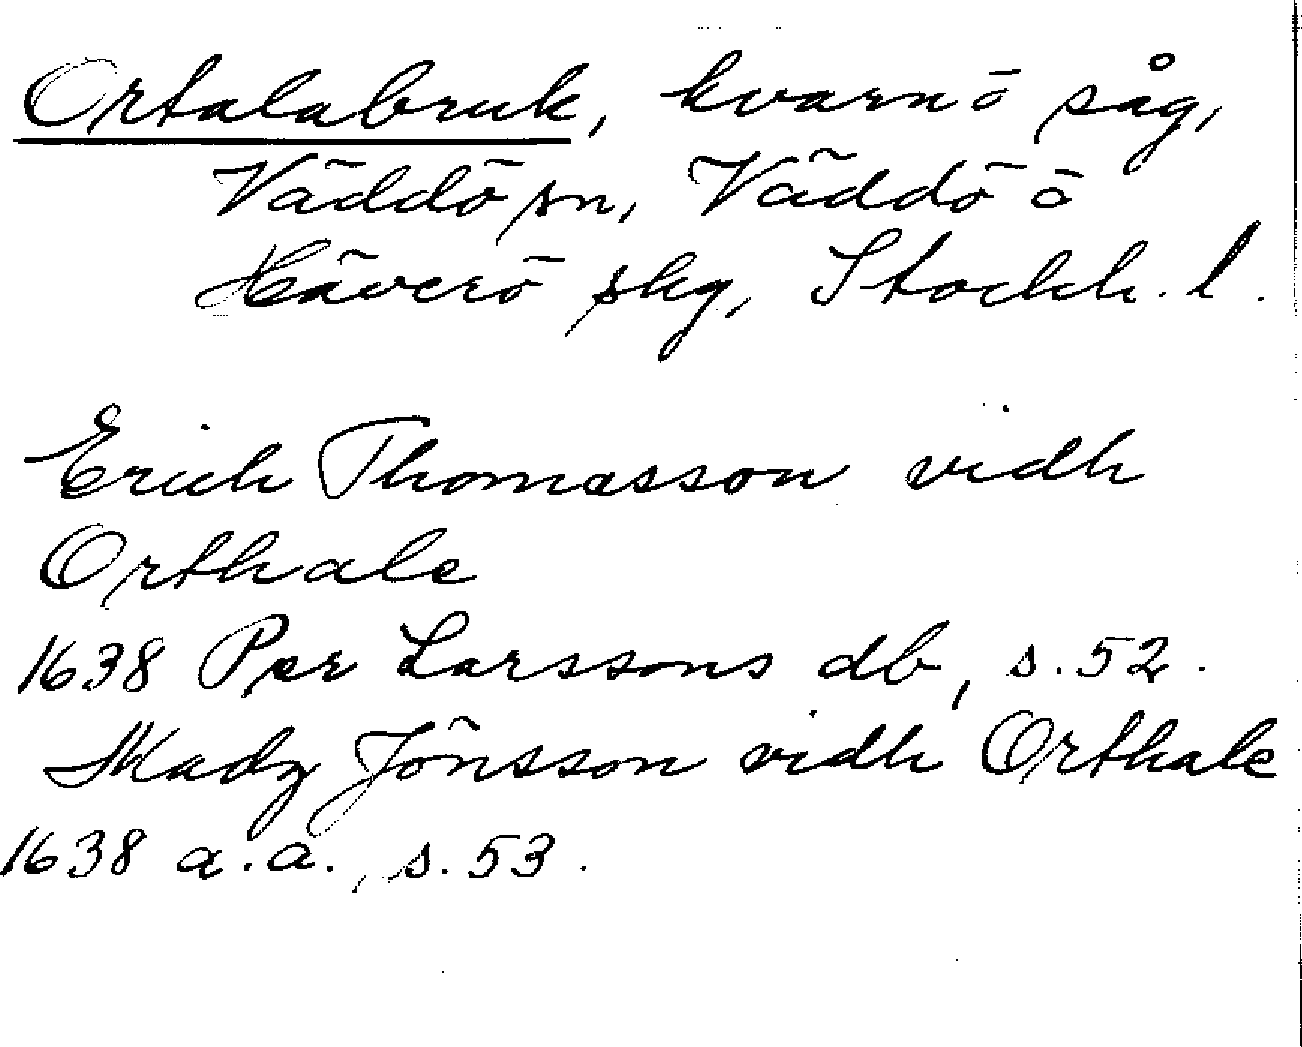 Ortalabruk, kvarn o såg,
Väddö sn, Väddö o
Häverö skg, Stockh. l.
Erich Thomasson vidh
Orthale
1638 Per Larssons db, s. 52.
Madz Jönsson vidh Orthale
1638 a.a., s. 53.